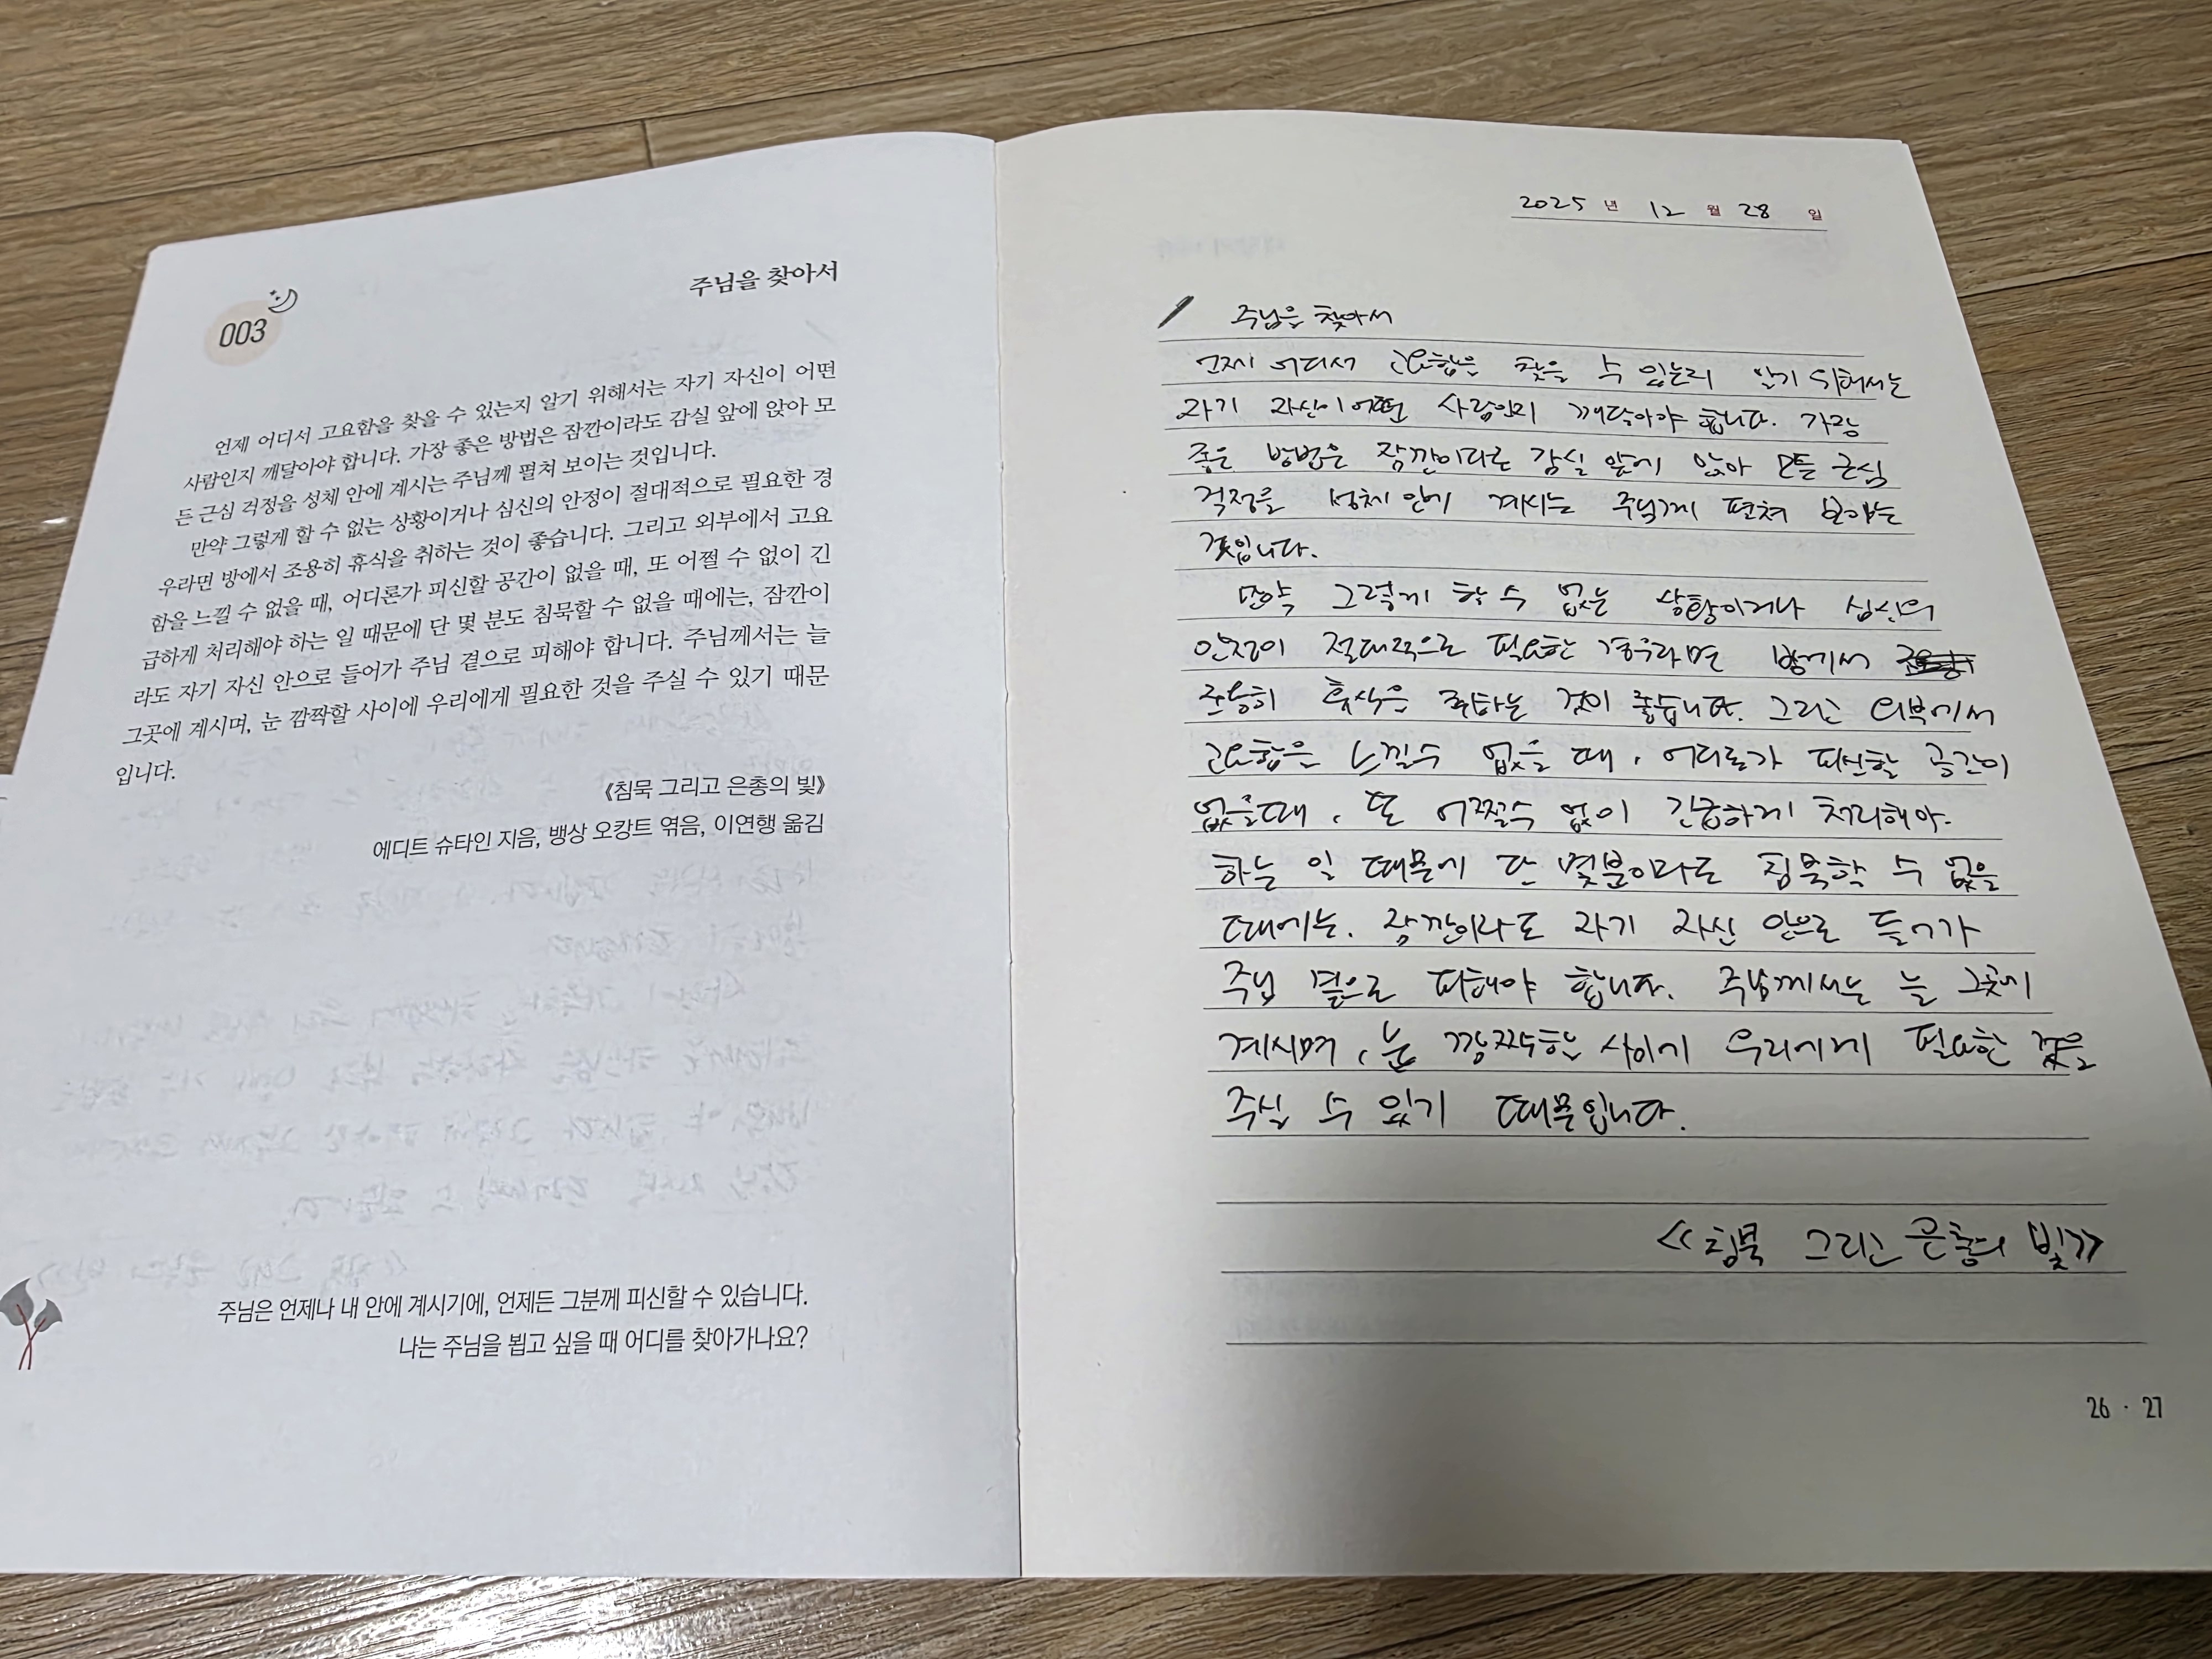 003
주님을 찾아서
언제 어디서 고요함을 찾을 수 있는지 알기 위해서는 자기 자신이 어떤
사람인지 깨달아야 합니다. 가장 좋은 방법은 잠깐이라도 감실 앞에 앉아 모
든 근심 걱정을 성체 안에 계시는 주님께 펼쳐 보이는 것입니다.
만약 그렇게 할 수 없는 상황이거나 심신의 안정이 절대적으로 필요한 경
우라면 방에서 조용히 휴식을 취하는 것이 좋습니다. 그리고 외부에서 고요
함을 느낄 수 없을 때, 어디론가 피신할 공간이 없을 때, 또 어쩔 수 없이 긴
급하게 처리해야 하는 일 때문에 단 몇 분도 침묵할 수 없을 때에는, 잠깐이
라도 자기 자신 안으로 들어가 주님 곁으로 피해야 합니다. 주님께서는 늘
그곳에 계시며, 눈 깜짝할 사이에 우리에게 필요한 것을 주실 수 있기 때문
입니다.
《침묵 그리고 은총의 빛》
에디트 슈타인 지음, 뱅상 오캉트 엮음, 이연행 옮김
주님은 언제나 내 안에 계시기에, 언제든 그분께 피신할 수 있습니다.
나는 주님을 뵙고 싶을 때 어디를 찾아가나요?
2025 년 12 월 28 일
주님을 찾아서
언제 어디서 고요함을 찾을 수 있는지 알기 위해서는
자기 자신이 어떤 사람인지 깨달아야 합니다. 가장
좋은 방법은 잠깐이라도 감실 앞에 앉아 모든 근심
걱정을 성체 안에 계시는 주님께 펼쳐 보이는
것입니다.
만약 그렇게 할 수 없는 상황이거나 심신의
안정이 절대적으로 필요한 경우라면 방에서
조용히 휴식을 취하는 것이 좋습니다. 그리고 외부에서
고요함을 느낄수 없을 때, 어디론가 피신할 공간이
없을때, 또 어쩔수 없이 긴급하게 처리해야
하는 일 때문에 단 몇분이라도 침묵할 수 없을
때에는. 잠깐이라도 자기 자신 안으로 들어가
주님 곁으로 피해야 합니다. 주님께서는 늘 그곳에
계시며, 눈 깜짝할 사이에 우리에게 필요한 것을
주실 수 있기 때문입니다.
《침묵 그리고 은총의 빛》
26 · 27